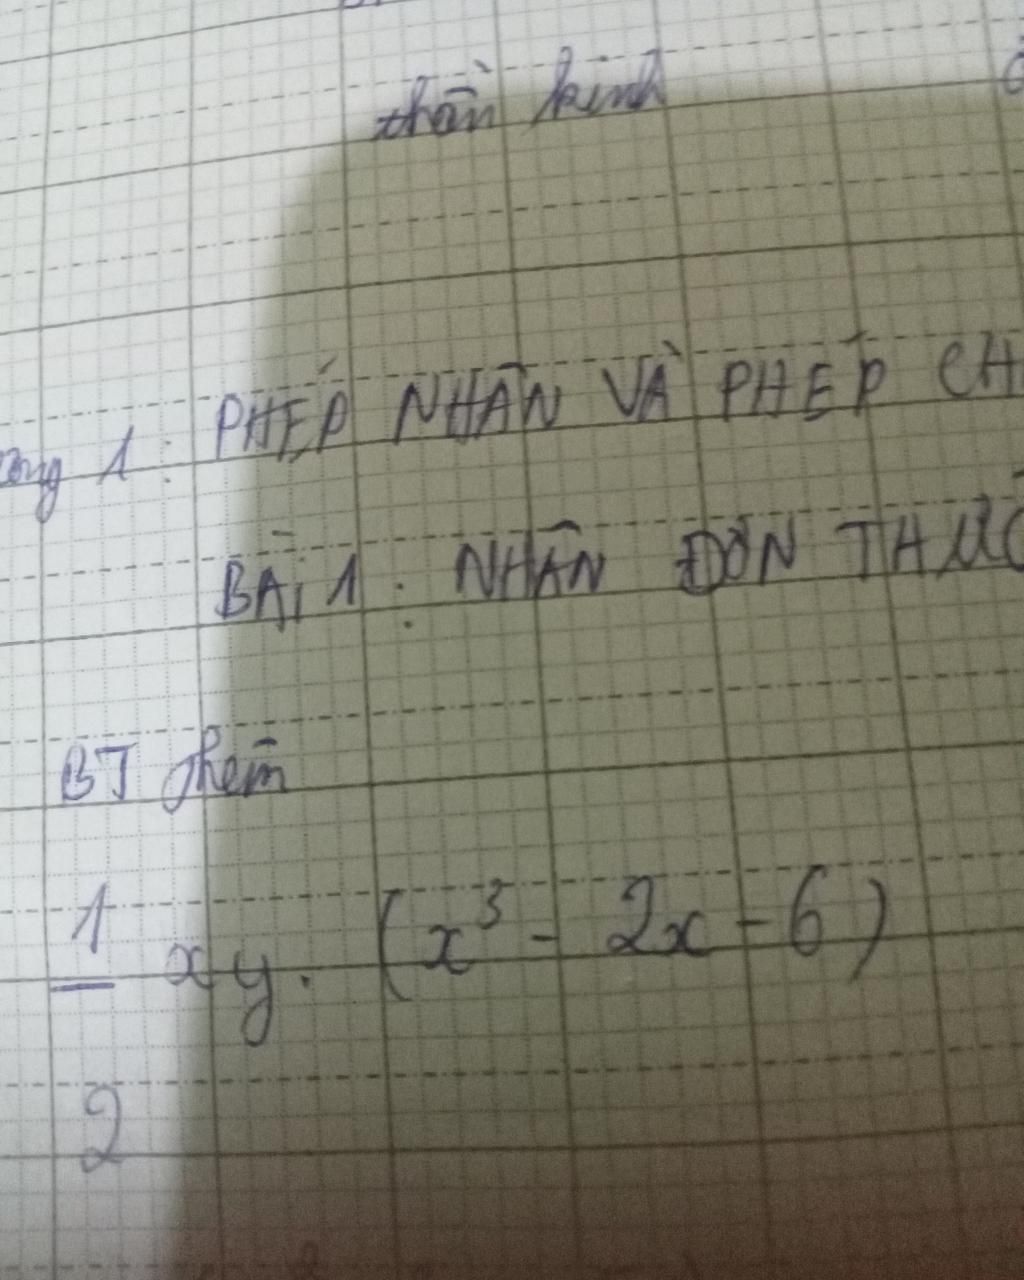 thần kinh
1: PHÉP NHÂN VÀ PHÉP
BÀI 1: NHÂN ĐƠN THỨC
BT thêm
1/2 xy. (x³ - 2x - 6)